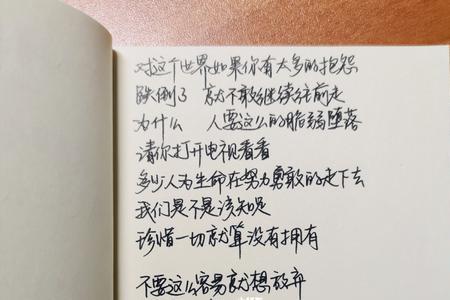 对这个世界如果你有太多的抱怨
跌倒了 就不敢继续往前走
为什么 人要这么的脆弱堕落
请你打开电视看看
多少人为生命在努力勇敢的走下去
我们是不是该知足
珍惜一切就算没有拥有
不要这么容易就想放弃